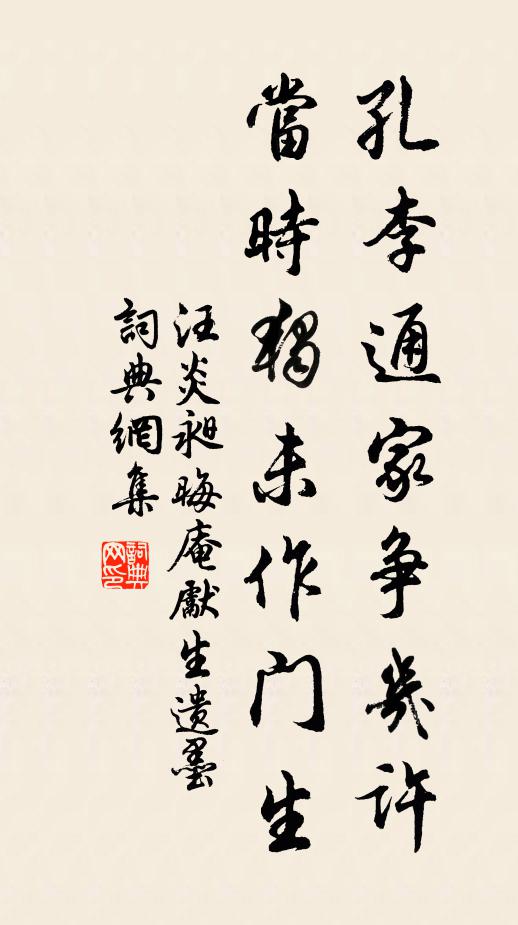 孔李通家争幾許
當時獨未作門生
汪炎昶晦庵獻生遺墨
詞典網集
詞典网印